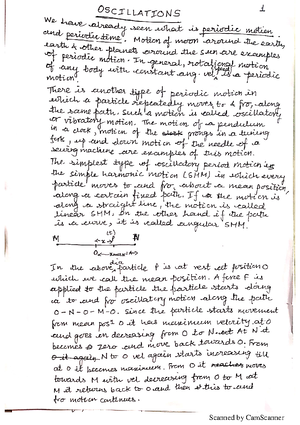 OSCILLATIONS
1
We have already seen what is periodic motion
and periodic time. Motion of moon around the earth,
earth & other planets around the sun are examples
of periodic motion. In general, rotational motion
of any body with constant ang. vel. is a periodic
motion.
There is another type of periodic motion in
which a particle repeatedly moves to & fro, along
the same path. Such a motion is called oscillatory
or vibratory motion. The motion of a pendulum
in a clock, motion of the prongs in a tuning
fork, up and down motion of the needle of a
sewing machine are examples of this motion.
The simplest type of oscillatory period motion is
the simple harmonic motion (SHM) in which every
particle moves to and fro, about a mean position,
along a certain fixed path. If the motion is
along a straight line, the motion is called
linear SHM. On the other hand if the path
is a curve, it is called angular SHM.
M N
x
O
In the above, particle P is at rest at position O
which we call the mean position. A force F is
applied to the particle the particle starts doing
a to and fro oscillatory motion along the path
O-N-O-M-O. Since the particle starts movement
from mean pos O it has maximum velocity at O
and goes on decreasing from O to N. At N it
becomes zero and move back towards O. From
N to O vel again starts increasing till
at O it becomes maximum. From O it moves
towards M with vel decreasing from O to M at
M it returns back to O and then this to and
fro motion continues.
Scanned by CamScanner